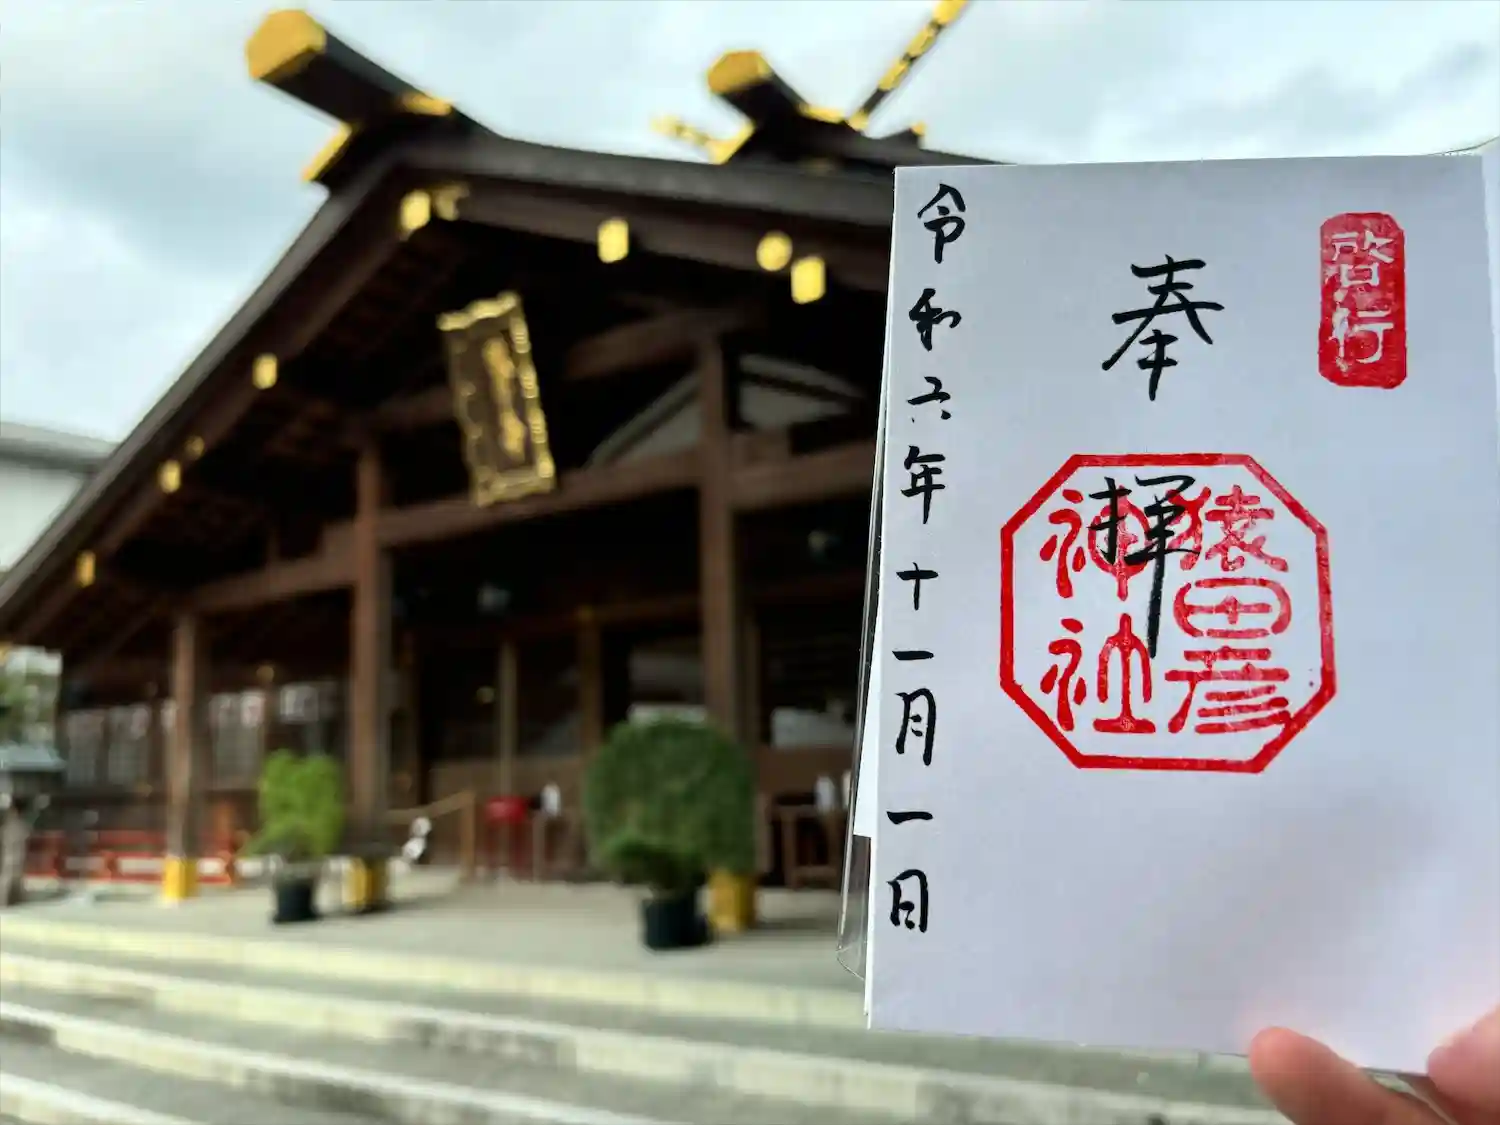 啓行
奉
拝
猿田彦
神社
令和六年十一月一日